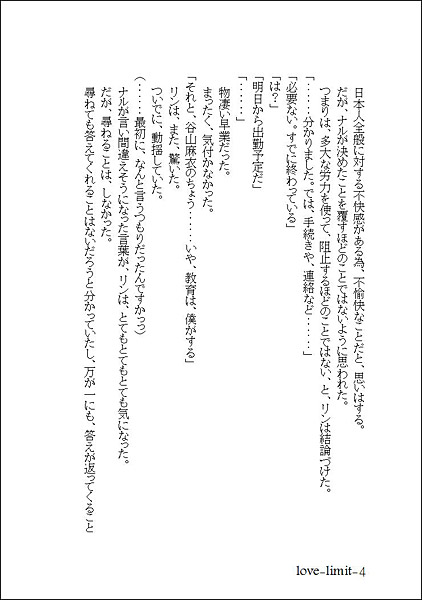 日本人全般に対する不快感がある為、不愉快なことだと、思いはする。
だが、ナルが決めたことを覆すほどのことではないように思われた。
つまりは、多大な労力を使って、阻止するほどのことではない、と、リンは結論づけた。
「‥‥‥分かりました。では、手続きや、連絡など‥‥‥」
「必要ない。すでに終わっている」
「は？」
「明日から出勤予定だ」
「‥‥‥」
物凄い早業だった。
まったく、気付かなかった。
「それと、谷山麻衣のちょう‥‥‥いや、教育は、僕がする」
リンは、また、驚いた。
ついでに、動揺していた。
（‥‥‥最初に、なんと言うつもりだったんですかっっ）
ナルが言い間違えそうになった言葉が、リンは、とてもとてもとても気になった。
だが、尋ねることは、しなかった。
尋ねても答えてくれることはないだろうと分かっていたし、万が一にも、答えが返ってくること
love-limit-4